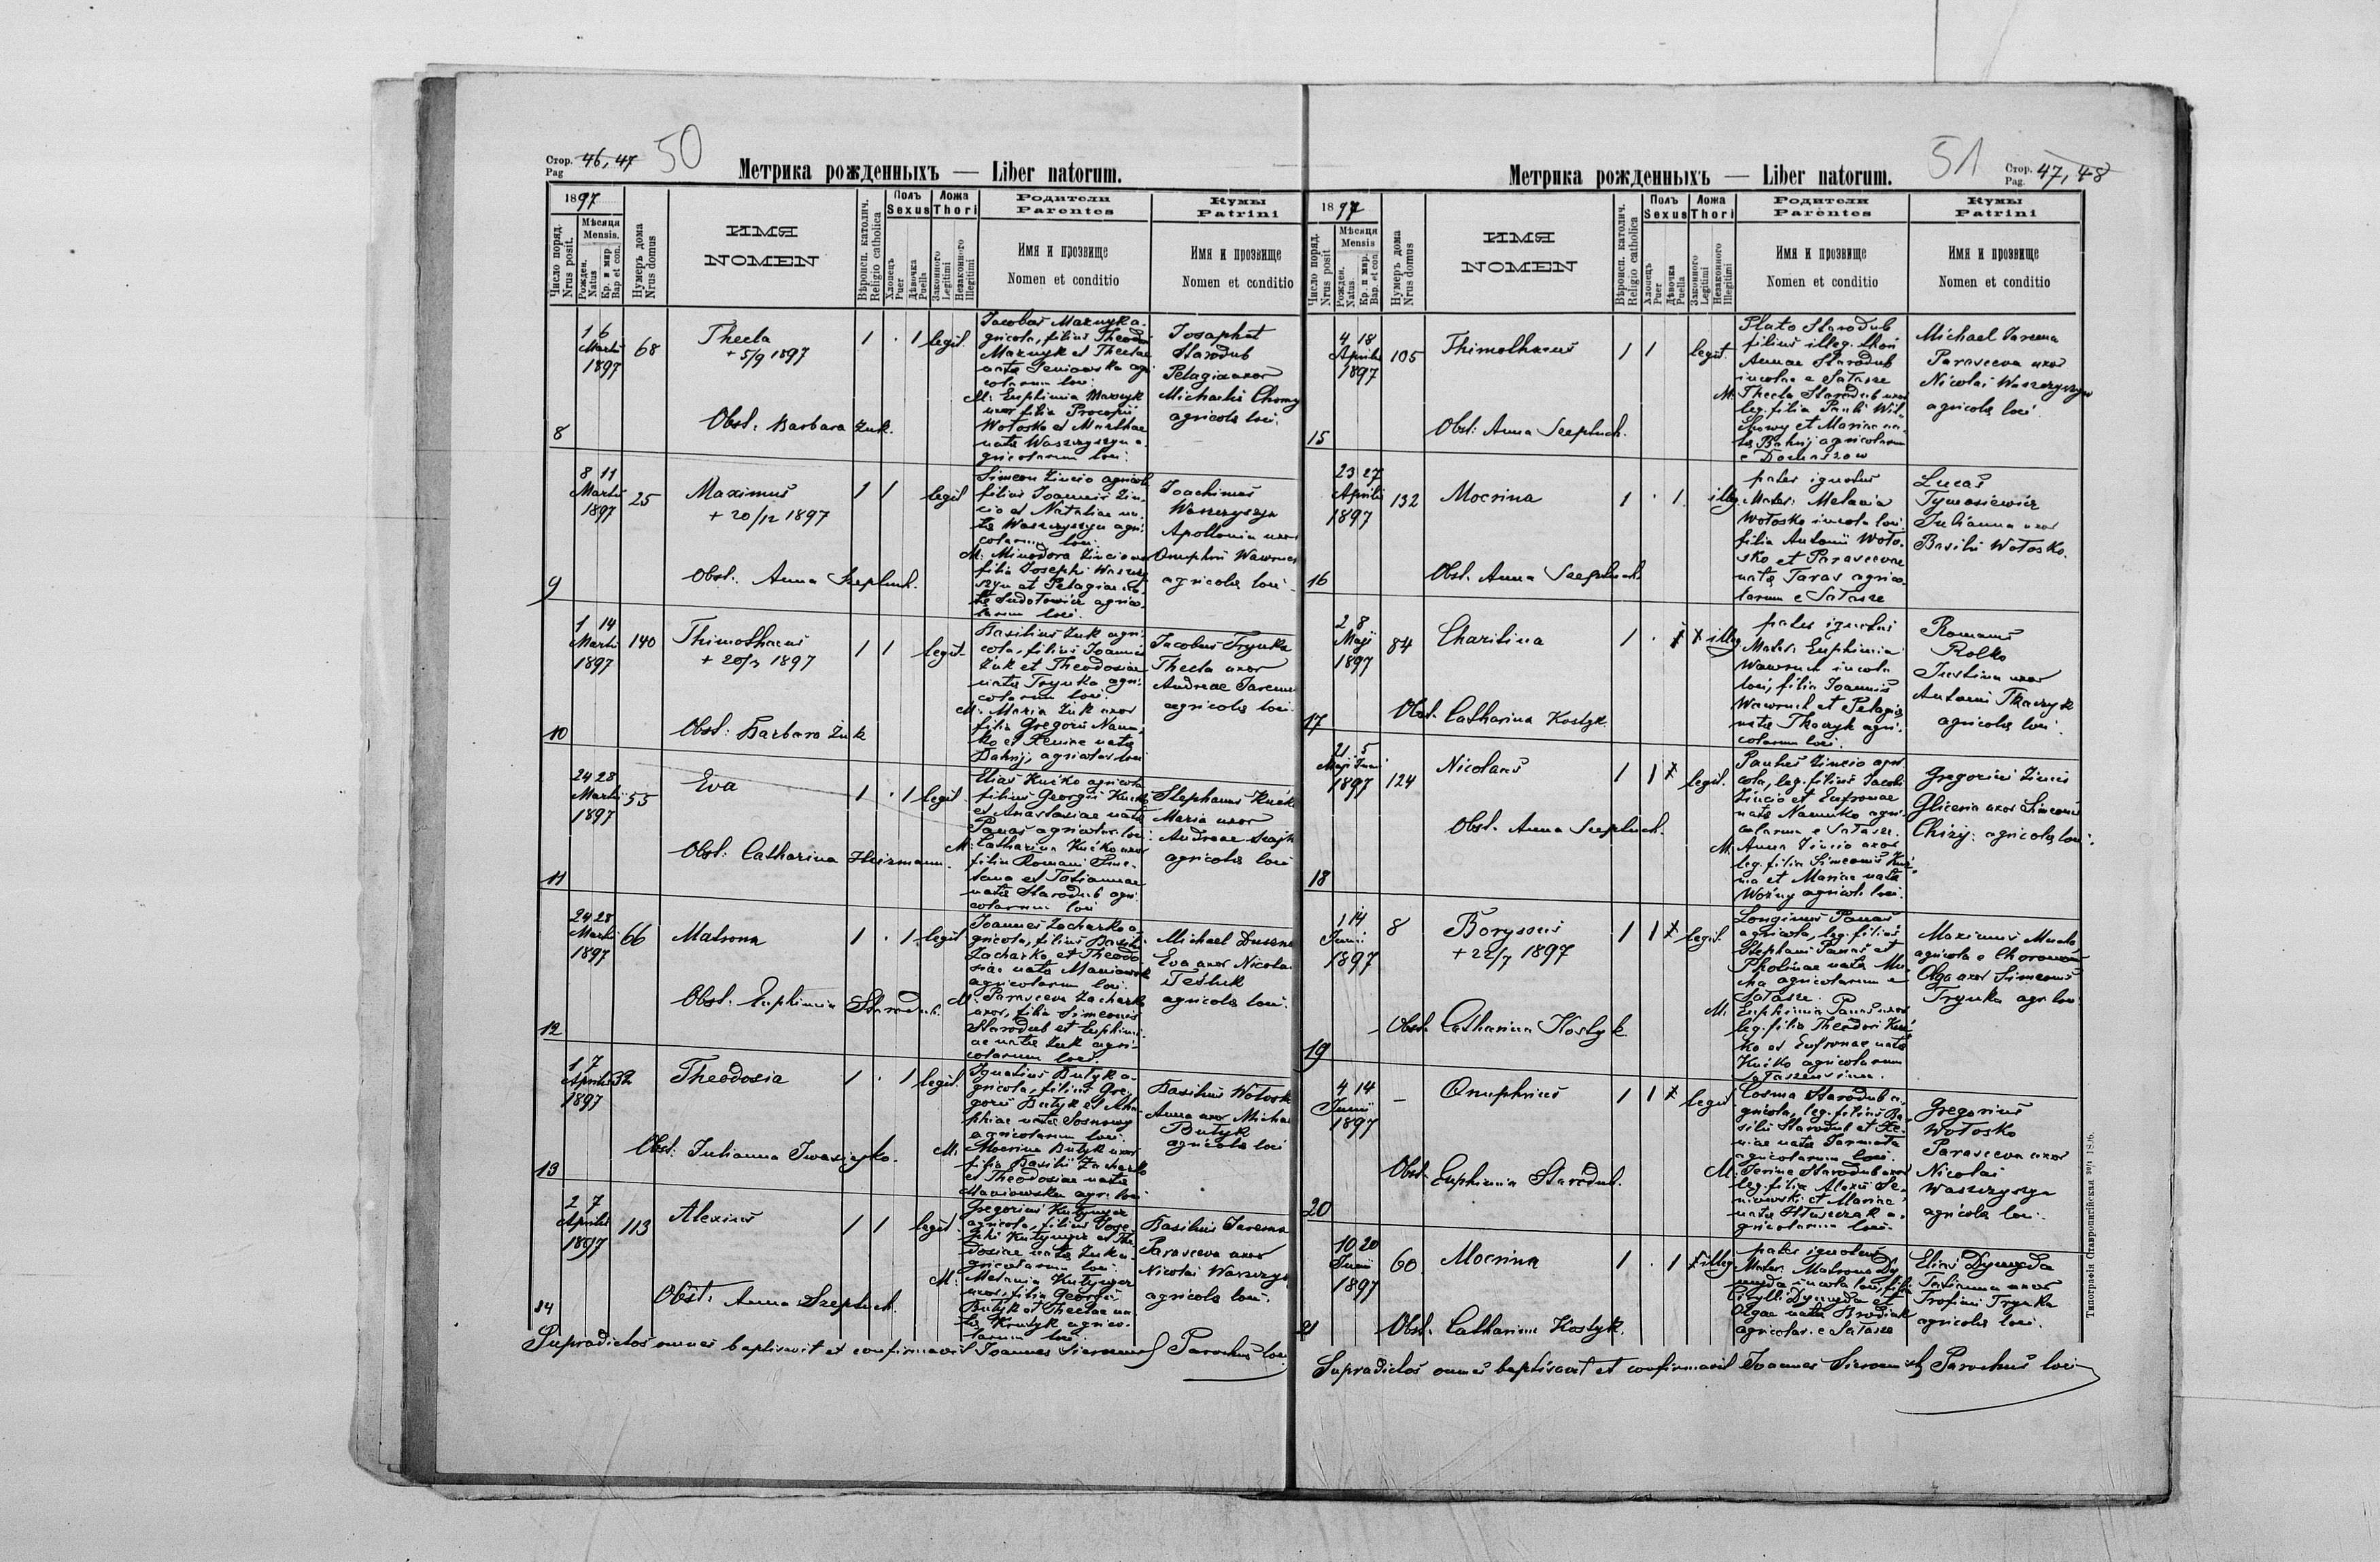 Стор. 46, 47
Pag
50
Метрика рожденныхъ — Liber natorum.
1897
Число поряд.
Nrus posit.
Мѣсяця
Mensis.
Рожден.
Natus
Кр. и мѵр
Bap et con.
Нумеръ дома
Nrus domus
ИМЯ
NOMEN
Вѣроисп. католич.
Religio catholica
Полъ
Sexus
Хлопецъ
Puer
Дѣвочка
Puella
Ложа
Thori
Законного
Legitimi
Незаконного
Illegitimi
Родители
Parentes
Имя и прозвище
Nomen et conditio
Кумы
Patrini
Имя и прозвище
Nomen et conditio
8
1 6
Martii
1897
68
Thecla
+ 5/9 1897
Obst. Barbara Żuk.
1 . 1 legit.
Jacobus Maznyk a-
gricola, filius Theodori
Maznyk et Theclae
natæ Seniowska agri
colarum loci.
M: Euphimia Maznyk
uxor filia Procopii
Wołosko et Marthae
natæ Waszczyszyn a-
gricolarum loci.
Josaphat
Starodub
Pelagia uxor
Michaelis Chomy
agricolæ loci.
9
8 11
Martii
1897
25
Maximus
+ 20/12 1897
Obst. Anna Szeptuch.
1 1 legit
Simeon Zincio agricola
filius Joannis Zin-
cio et Nataliae na-
tæ Waszczyszyn agri-
colarum loci.
M. Minodora Zincio uxor
filia Josephi Waszczy
szyn et Pelagiae na-
tæ Sudołowicz agrico-
larum loci.
Joachimus
Waszczyszyn
Apollonia uxor
Onuphrii Wawruch
agricolæ loci
10
1 14
Martii
1897
140
Thimothaeus
+ 20/3 1897
Obst: Barbara Żuk
1 1 legit.
Basilius Żuk agri-
cola, filius Joannis
Żuk et Theodosiae
natæ Trynka agri-
colarum loci.
M. Maria Żuk uxor
filia Gregorii Naum-
ko et Xeniae natæ
Bahrij, agricolar. loci
Jacobus Trynka
Thecla uxor
Andreae Jarema
agricolæ loci.
11
24 28
Martii
1897
55
Eva
Obst: Catharina
1 . 1 legit.
Elias Kućko agricola
filius Georgii Kućko
et Anastasiae natæ
Panas agricolar. loci.
M: Catharina Kućko uxor
filia Romani
et Tatiannae
natæ Starodub agri
colarum loci
Stephanus Kućko
Maria uxor
Andreae
agricolæ loci
12
24 28
Martii
1897
66
Matrona
Obst. Euphimia Starodub.
1 . 1 legit
Joannes Zacharko a-
gricola, filius Basilii
Zacharko et Theodo
siae natæ Maniowska
agricolarum loci.
M. Parasceva Zacharko
uxor, filia Simeonis
Starodub et Euphimi-
ae natæ Żuk agri-
colarum loci.
Michael
Eva uxor Nicolai
Teśluk
agricolæ loci.
13
1 7
Aprilis
1897
32
Theodosia
Obst: Julianna Iwasieczko.
1 . 1 legit.
Ignatius Butyk a-
gricola, filius Gre-
gorii Butyk et Aha-
phiae natæ Sosnowy
agricolarum loci.
M. Mocrina Butyk uxor
filia Basilii Zacharko
et Theodosiae natæ
Maniowska agr. loci
Basilius Wołosko
Anna uxor Michaelis
Butyk
agricolæ loci
14
2 7
Aprilis
1897
113
Alexius
Obst: Anna Szeptuch.
1 1 legit.
Gregorius Kutynyez
agricola, filius Jose
phi Kutynyez et Theo
dosiae natæ Żuk a-
gricolarum loci.
M: Melania Kutynyez
uxor, filia Georgii
Butyk et Theclae na-
tæ Krutyk agrico-
larum loci.
Basilius Jarema
Parasceva uxor
Nicolai Waszczyszyn
agricolæ loci.
Supradictos omnes baptisavit et confirmavit Joannes Parochus loci
51
Стор. 47, 48
Pag.
Метрика рожденныхъ — Liber natorum.
1897
Число поряд.
Nrus posit
Мѣсяця
Mensis
Рожден.
Natus.
Кр. и мѵр.
Bap. et con
Нумеръ дома
Nrus domus
ИМЯ
NOMEN
Вѣроисп. католич.
Religio catholica
Полъ
Sexus
Хлопецъ
Puer
Дѣвочка
Puella
Ложа
Thori
Законного
Legitimi
Незаконного
Illegitimi
Родители
Parentes
Имя и прозвище
Nomen et conditio
Кумы
Patrini
Имя и прозвище
Nomen et conditio
15
4 18
Aprilis
1897
105
Thimothaeus
Obst: Anna Szeptuch.
1 1 legit.
Plato Starodub
filius illeg. thori
Annae Starodub
incolae e Sałasze
M. Thecla Starodub uxor
leg. filia Pauli Wil-
et Mariae na-
tæ Bahrij agricolarum
e Domaszow
Michael Jarema
Parasceva uxor
Nicolai Waszczyszyn
agricolæ loci
16
23 27
Aprilis
1897
132
Mocrina
Obst. Anna Szeptuch.
1 . 1 illeg.
pater ignotus
Mater: Melania
Wołosko incola loci.
filia Antonii Woło-
sko et Parascevae
natæ Taras agrico-
larum e Sałasze
Lucas
Tymosiewicz
Julianna uxor
Basilii Wołosko.
17
2 8
Maji
1897
84
Charitina
Obst. Catharina Kostyk.
1 . 1 illeg.
pater ignotus
Mater Euphimia
Wawruch incola
loci, filia Joannis
Wawruch et Pelagiæ
natæ Tkaczyk agri-
colarum loci.
Romanus
Rolko
Justina uxor
Antonii Tkaczyk
agricolæ loci.
18
21 5
Maji Junii
1897
124
Nicolaus
Obst. Anna Szeptuch.
1 1 legit.
Paulus Zincio agri
cola, leg. filius Jacobi
Zincio et Eufronae
natæ Naumko agri-
colarum e Sałasze.
M. Anna Zincio uxor
leg. filia Simeonis
et Mariae natæ
Woźny agricol. loci.
Gregorius Zincio
Gliceria uxor Simeonis
Chizij agricolæ loci.
19
1 14
Junii
1897
8
Borysius
+ 22/7 1897
Obst. Catharina Kostyk
1 1 legit.
Longinus Panas
agricola, leg. filius
Stephani Panas et
Photinae natæ Mu-
cha agricolarum e
Sałasze.
M. Euphimia Panas uxor
leg. filia Theodori Kuć-
ko et Eufronae natæ
Kućko agricolarum
Maximus Mucha
agricola e
Olga uxor Simeonis
Trynka agr. loci
20
4 14
Junii
1897
–
Onuphrius
Obst. Euphimia Starodub.
1 1 legit.
Cosma Starodub a-
gricola, leg. filius Ba
silii Starodub et Xe-
niae natæ
agricolarum loci.
M. Irina Starodub uxor
leg. filia Alexii Se-
niowski et Mariae
natæ a-
gricolarum loci.
Gregorius
Wołosko
Parasceva uxor
Nicolai
Waszczyszyn
agricolæ loci.
21
10 20
Junii
1897
60
Mocrina
Obst. Catharina Kostyk.
1 . 1 illeg.
pater ignotus
Mater: Matrona Dy
myda incola loci, filia
Cyrylli Dymyda et
Olgae natæ Brodiak
agricolar. e Sałasze
Elias Dymyda
Julianna uxor
Trofimi Trynka
agricolæ loci.
Supradictos omnes baptisavit et confirmavit Joannes Parochus loci
Типографія Ставропигійская 1896.